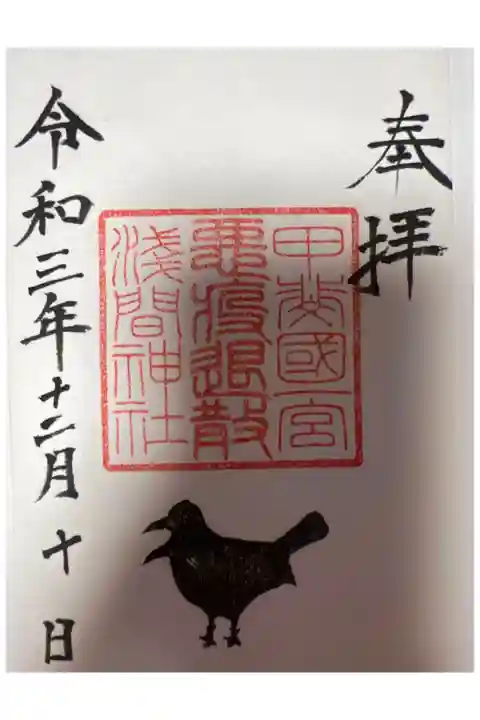 奉拝
甲斐國一宮
悪疫退散
浅間神社
令和三年十二月十日